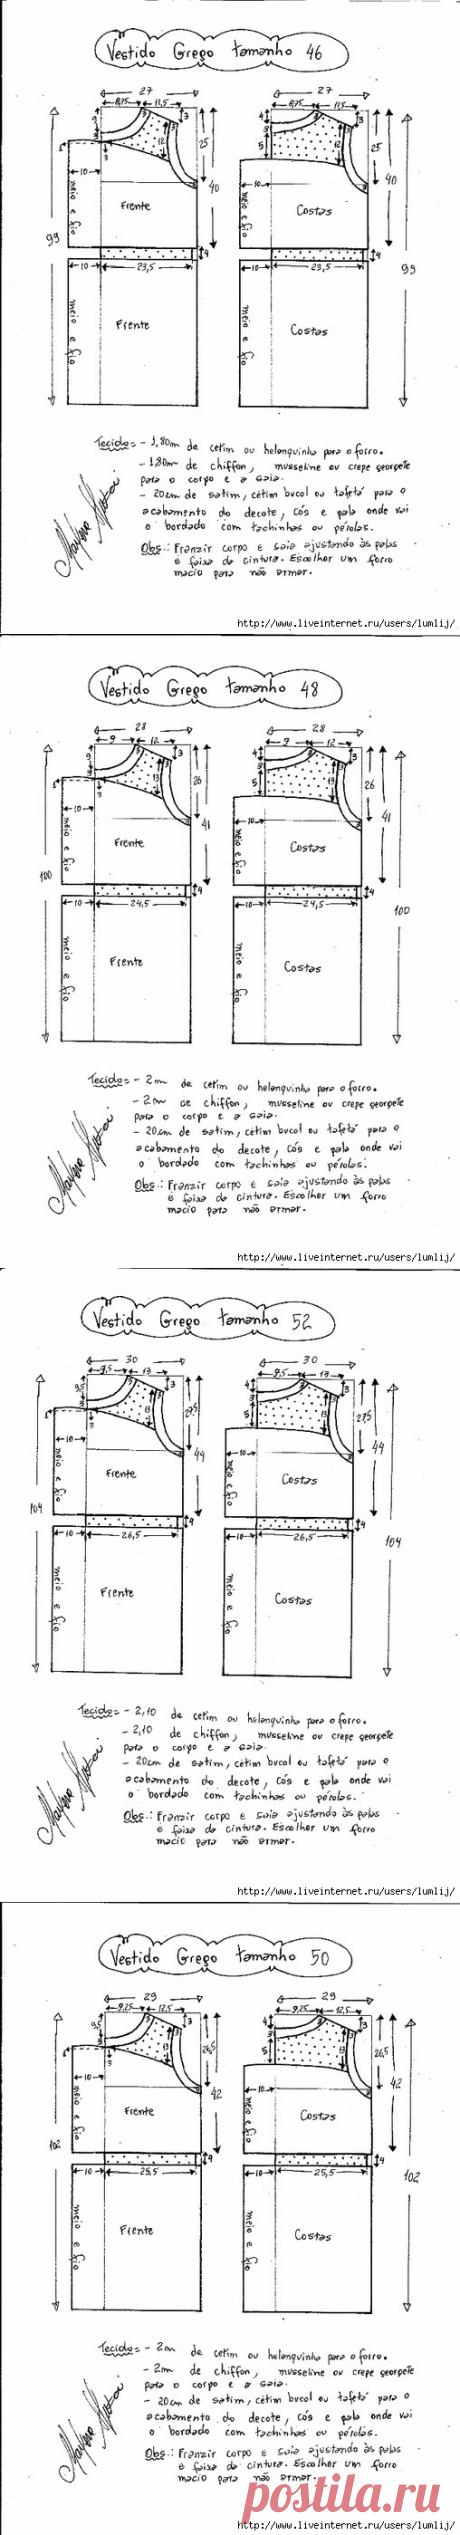 Vestido Grego tamanho 46
27
27
8,75 11,5
8,75 11,5
9 3 3 12 3 25 40
4 3 5 12 3 25 40
99
99
10
10
meio e fio
Frente
meio e fio
Costas
4
4
10 23,5
10 23,5
meio e fio
Frente
meio e fio
Costas
Tecido = - 1,80m de cetim ou helanquinha para o forro.
- 1,80m de chiffon, musseline ou crepe georgete
para o corpo e a saia.
- 20cm de satim, cetim bucol ou tafetá para o
acabamento do decote, cós e pala onde vai
o bordado com tachinhas ou pérolas.
Obs.: Franzir corpo e saia ajustando às palas
e faixa da cintura. Escolher um forro
macio para não armar.
http://www.liveinternet.ru/users/lumlij/
Vestido Grego tamanho 48
28
28
9 12
9 12
3 13 3 26 41
4 3 5 13 3 26 41
100
100
10
10
meio e fio
Frente
meio e fio
Costas
4
4
10 24,5
10 24,5
meio e fio
Frente
meio e fio
Costas
Tecido = - 2m de cetim ou helanquinha para o forro.
- 2m de chiffon, musseline ou crepe georgete
para o corpo e a saia.
- 20cm de satim, cetim bucol ou tafetá para o
acabamento do decote, cós e pala onde vai
o bordado com tachinhas ou pérolas.
Obs.: Franzir corpo e saia ajustando às palas
e faixa da cintura. Escolher um forro
macio para não armar.
http://www.liveinternet.ru/users/lumlij/
Vestido Grego tamanho 52
30
30
9,5 13
9,5 13
9,5 3 3 13 3 27,5 44
4 3 5 13 3 27,5 44
104
104
10
10
meio e fio
Frente
meio e fio
Costas
4
4
10 26,5
10 26,5
meio e fio
Frente
meio e fio
Costas
Tecido = - 2,10 de cetim ou helanquinha para o forro.
- 2,10 de chiffon, musseline ou crepe georgete
para o corpo e a saia.
- 20cm de satim, cetim bucol ou tafetá para o
acabamento do decote, cós e pala onde vai
o bordado com tachinhas ou pérolas.
Obs.: Franzir corpo e saia ajustando às palas
e faixa da cintura. Escolher um forro
macio para não armar.
http://www.liveinternet.ru/users/lumlij/
Vestido Grego tamanho 50
29
29
9,25 12,5
9,25 12,5
9,5 3 3 13 3 26,5 42
4 3 5 13 3 26,5 42
102
102
10
10
meio e fio
Frente
meio e fio
Costas
4
4
10 25,5
10 25,5
meio e fio
Frente
meio e fio
Costas
Tecido = - 2m de cetim ou helanquinha para o forro.
- 2m de chiffon, musseline ou crepe georgete
para o corpo e a saia.
- 20cm de satim, cetim bucol ou tafetá para o
acabamento do decote, cós e pala onde vai
o bordado com tachinhas ou pérolas.
Obs.: Franzir corpo e saia ajustando às palas
e faixa da cintura. Escolher um forro
macio para não armar.
postila.ru
http://www.liveinternet.ru/users/lumlij/